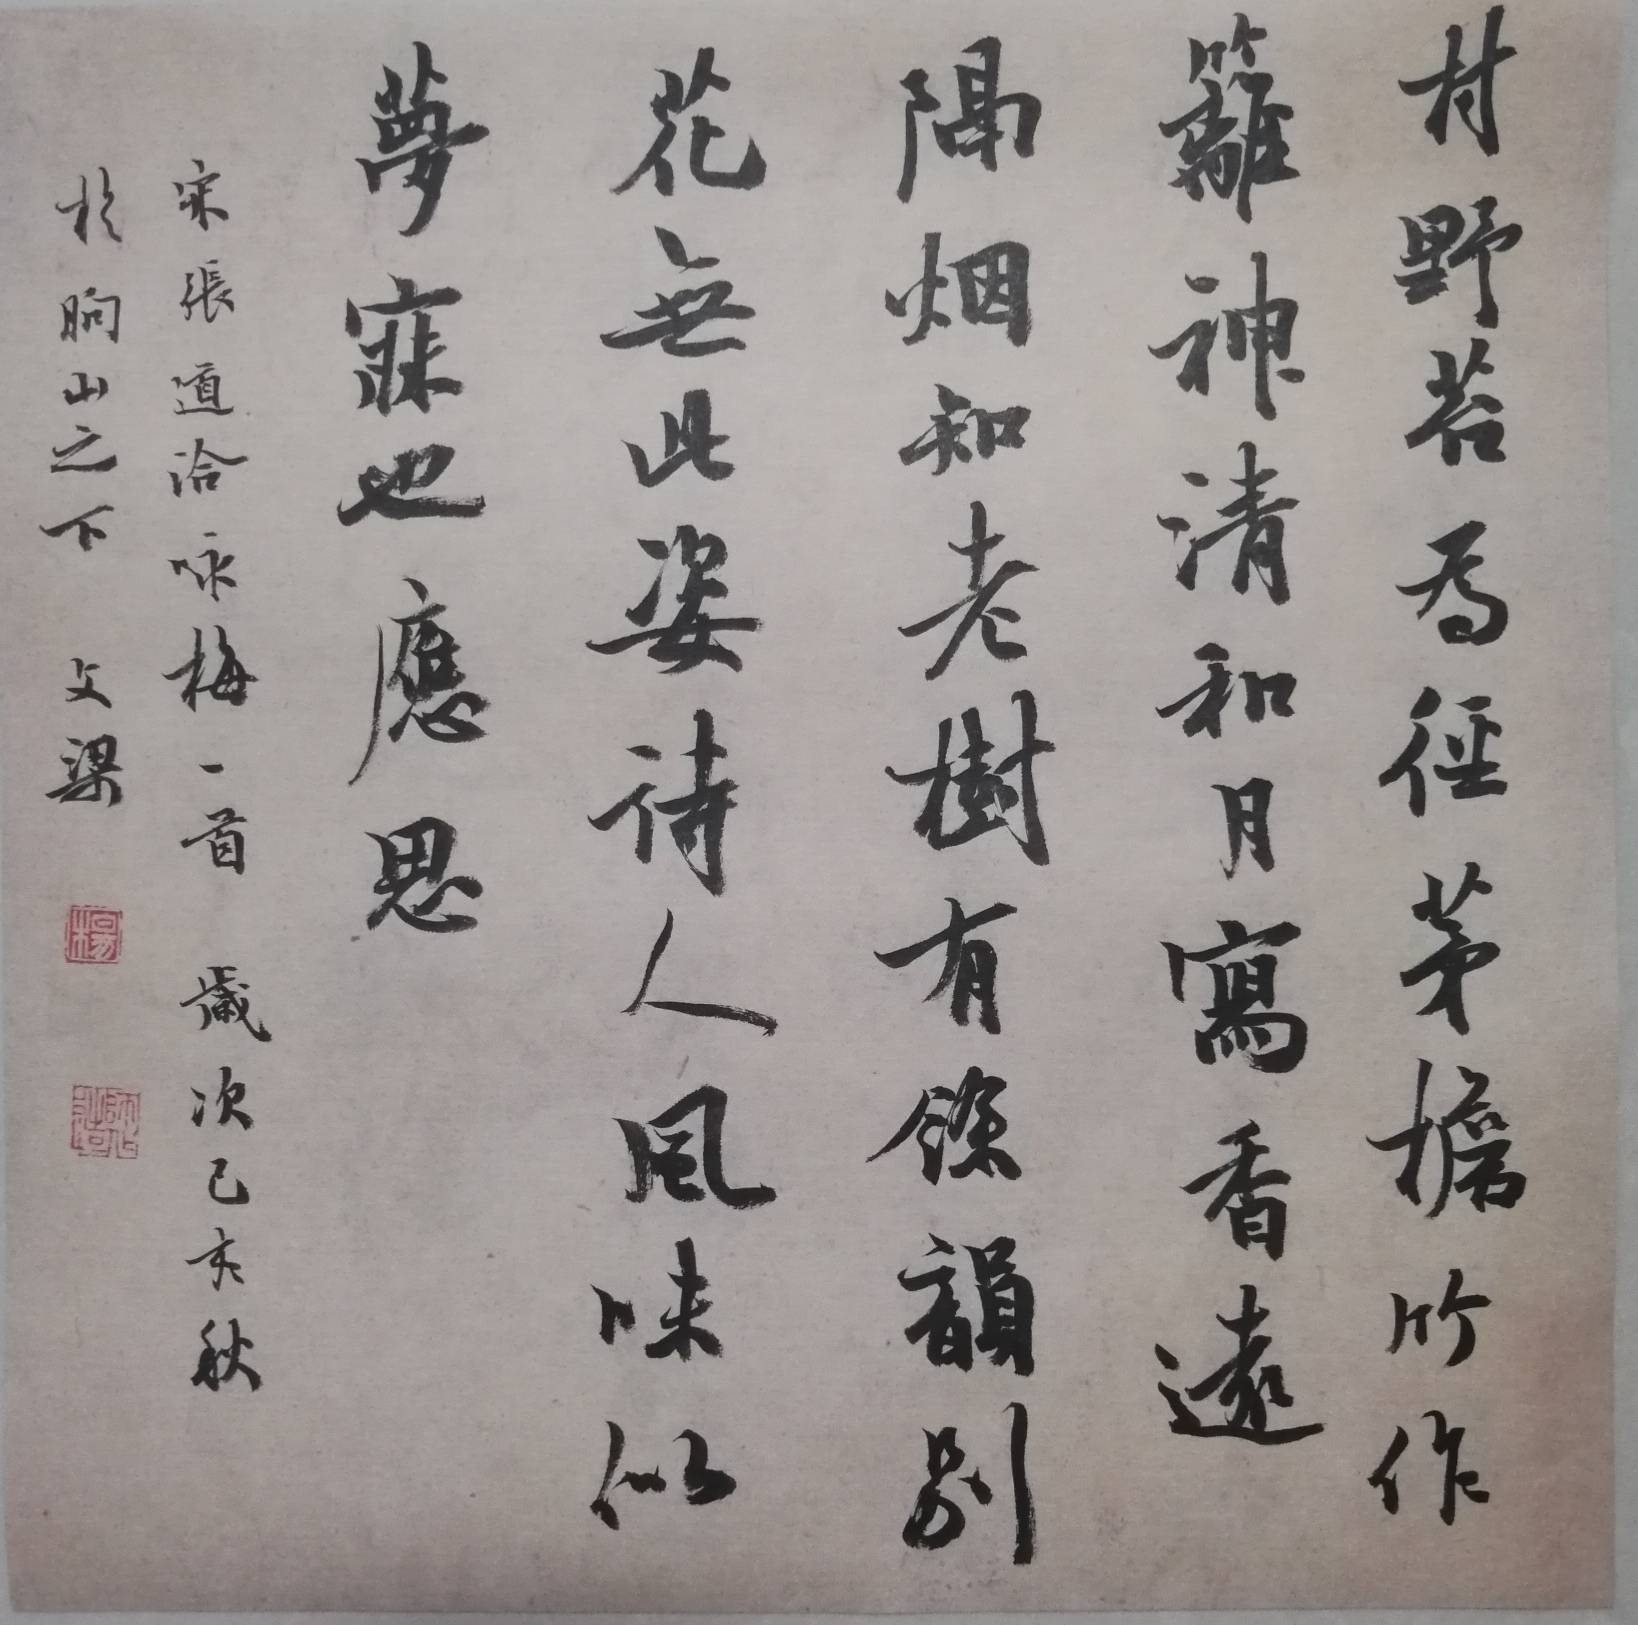 村野苔為径茅檐竹作
籬神清和月寫香遠
隔烟知老樹有餘韻別
花無此姿待人風味似
夢寐也應思
宋張道洽咏梅一首 歲次己亥秋
於昫山之下 文梁
楊